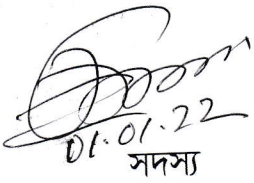 01.01.22
সদস্য